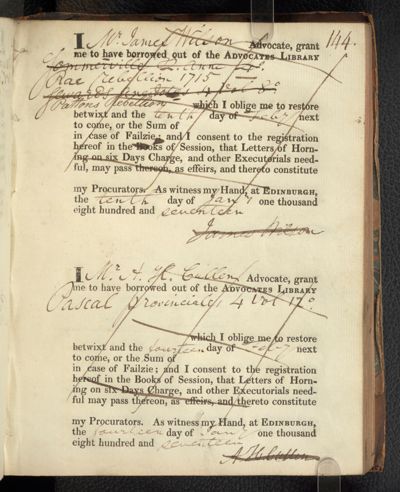 144.
I Mr James Wilson Advocate, grant
me to have borrowed out of the ADVOCATES LIBRARY
Sommerville Q. Anne 4°
Rae rebellion 1715
4 vol 8°
Pattons Rebellion which I oblige me to restore
betwixt and the tenth day of Feby next
to come, or the Sum of
in case of Failzie; and I consent to the registration
hereof in the Books of Session, that Letters of Horn-
ing on six Days Charge, and other Executorials need-
ful, may pass thereon, as effeirs, and thereto constitute
my Procurators. As witness my Hand, at EDINBURGH,
the tenth day of Jany one thousand
eight hundred and seventeen
James Wilson
I Mr A. H. Cullen Advocate, grant
me to have borrowed out of the ADVOCATES LIBRARY
Pascal Provinciales 4 vol 12°
which I oblige me to restore
betwixt and the fourteen day of Feby next
to come, or the Sum of
in case of Failzie; and I consent to the registration
hereof in the Books of Session, that Letters of Horn-
ing on six Days Charge, and other Executorials need-
ful may pass thereon, as effeirs, and thereto constitute
my Procurators. As witness my Hand, at EDINBURGH,
the fourteen day of Jany one thousand
eight hundred and seventeen
A H Cullen